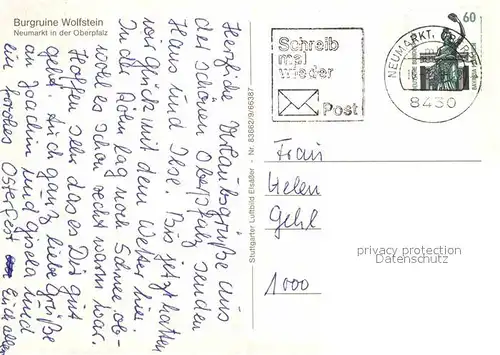 Burgruine Wolfstein
Neumarkt in der Oberpfalz
Herzliche Urlaubsgrüße aus
der schönen Oberpfalz senden
Hans und Ilse. Bis jetzt hatten
wir Glück mit dem Wetter hier.
In der Höhn lag noch Schnee ob-
wohl es schon recht warm war.
Hoffen sehr das es Dir gut
geht. Auch ganz liebe Grüße
an Joachim und Gisela und
ein frohes Osterfest Euch allen
Stuttgarter Luftbild Elsäßer - Nr. 83662/9/66387
Schreib
mal
wieder
Post
NEUMARKT,
8430
60
Frau
Helen
Gehl
1000
privacy protection
Datenschutz